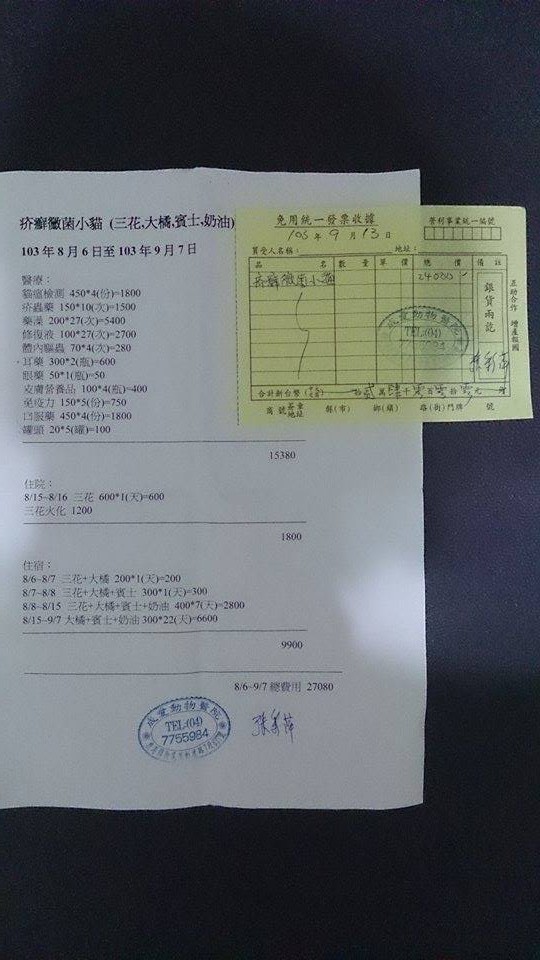 疥癬黴菌小貓 (三花,大橘,賓士,奶油)
103 年 8 月 6 日至 103 年 9 月 7 日
醫療：
貓瘟檢測 450*4(份)=1800
疥蟲藥 150*10(次)=1500
藥澡 200*27(次)=5400
修復液 100*27(次)=2700
體內驅蟲 70*4(次)=280
耳藥 300*2(瓶)=600
眼藥 50*1(瓶)=50
皮膚營養品 100*4(瓶)=400
免疫力 150*5(份)=750
口服藥 450*4(份)=1800
罐頭 20*5(罐)=100
15380
住院：
8/15~8/16 三花 600*1(天)=600
三花火化 1200
1800
住宿：
8/6~8/7 三花+大橘 200*1(天)=200
8/7~8/8 三花+大橘+賓士 300*1(天)=300
8/8~8/15 三花+大橘+賓士+奶油 400*7(天)=2800
8/15~9/7 大橘+賓士+奶油 300*22(天)=6600
9900
8/6~9/7 總費用 27080
動物醫院
TEL:(04)
7755984
免用統一發票收據
年 9 月 13 日
營利事業統一編號
買受人名稱：
地址：
品 名 數 量 單 價 總 價 備 註
疥癬黴菌小貓
24000
銀貨兩訖
互助合作 增產報國
動物醫院
TEL:(04)
合計新台幣 拾貳萬肆千零百零拾零元
商號蓋章地址 縣(市) 鄉(鎮) 路(街)門牌 號